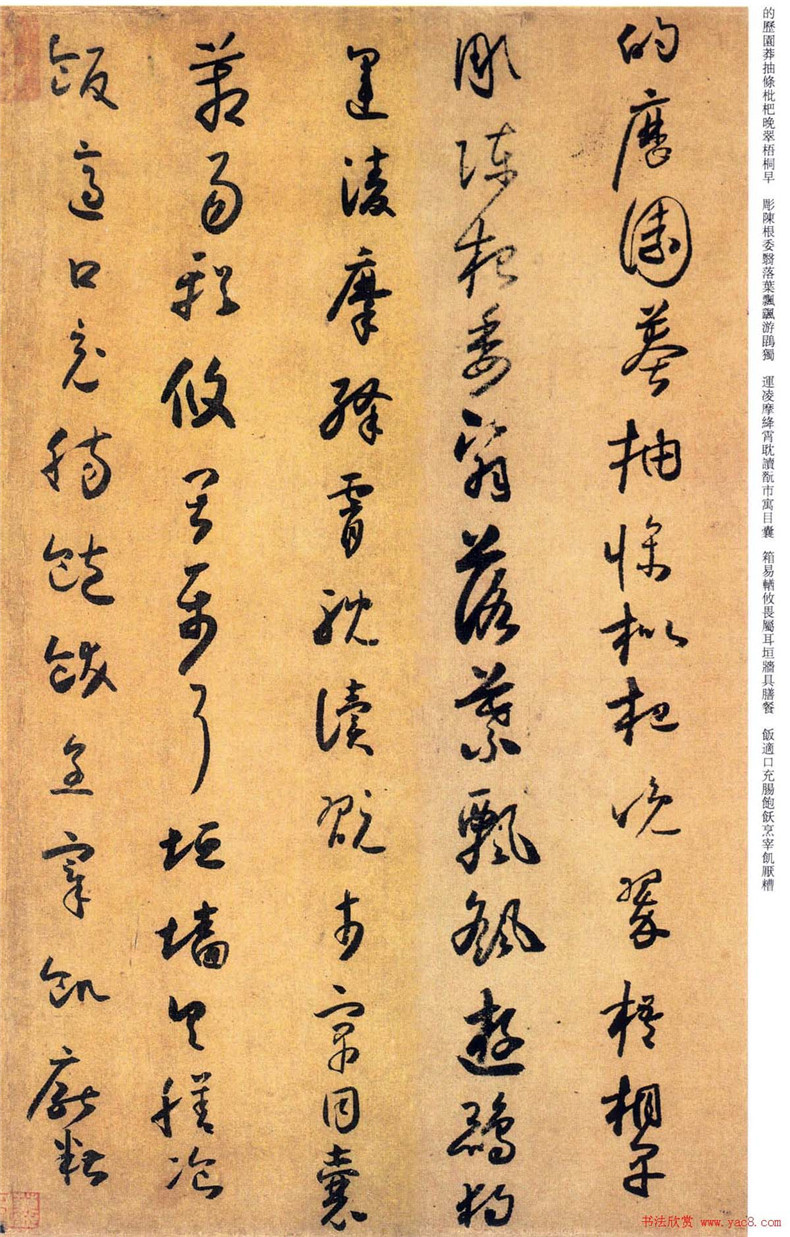 的歷園莽抽條枇杷晚翠梧桐早　彫陳根委翳落葉飄颻游鵾獨　運凌摩絳霄耽讀翫市寓目囊　箱易輶攸畏屬耳垣牆具膳餐　飯適口充腸飽飫烹宰飢厭糟
的歷園莽抽條枇杷晚翠梧桐早
彫陳根委翳落葉飄颻遊鵾獨
運凌摩絳霄耽讀翫市寓目囊
箱易輶攸畏屬耳垣墻具膳飡
飯適口充腸飽飫烹宰飢厭糟
书法欣赏 www.yac8.com